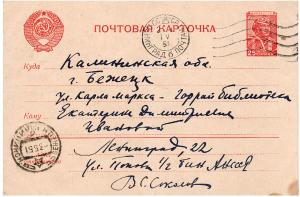 ПОЧТОВАЯ КАРТОЧКА
Куда
Калининская обл.
г. Бежецк
ул. Карла-Маркса - Горрайбиблиотека
Кому
Екатерине Дмитриевне
Ивановой
Ленинград, 22
ул. Попова
В. Соколов